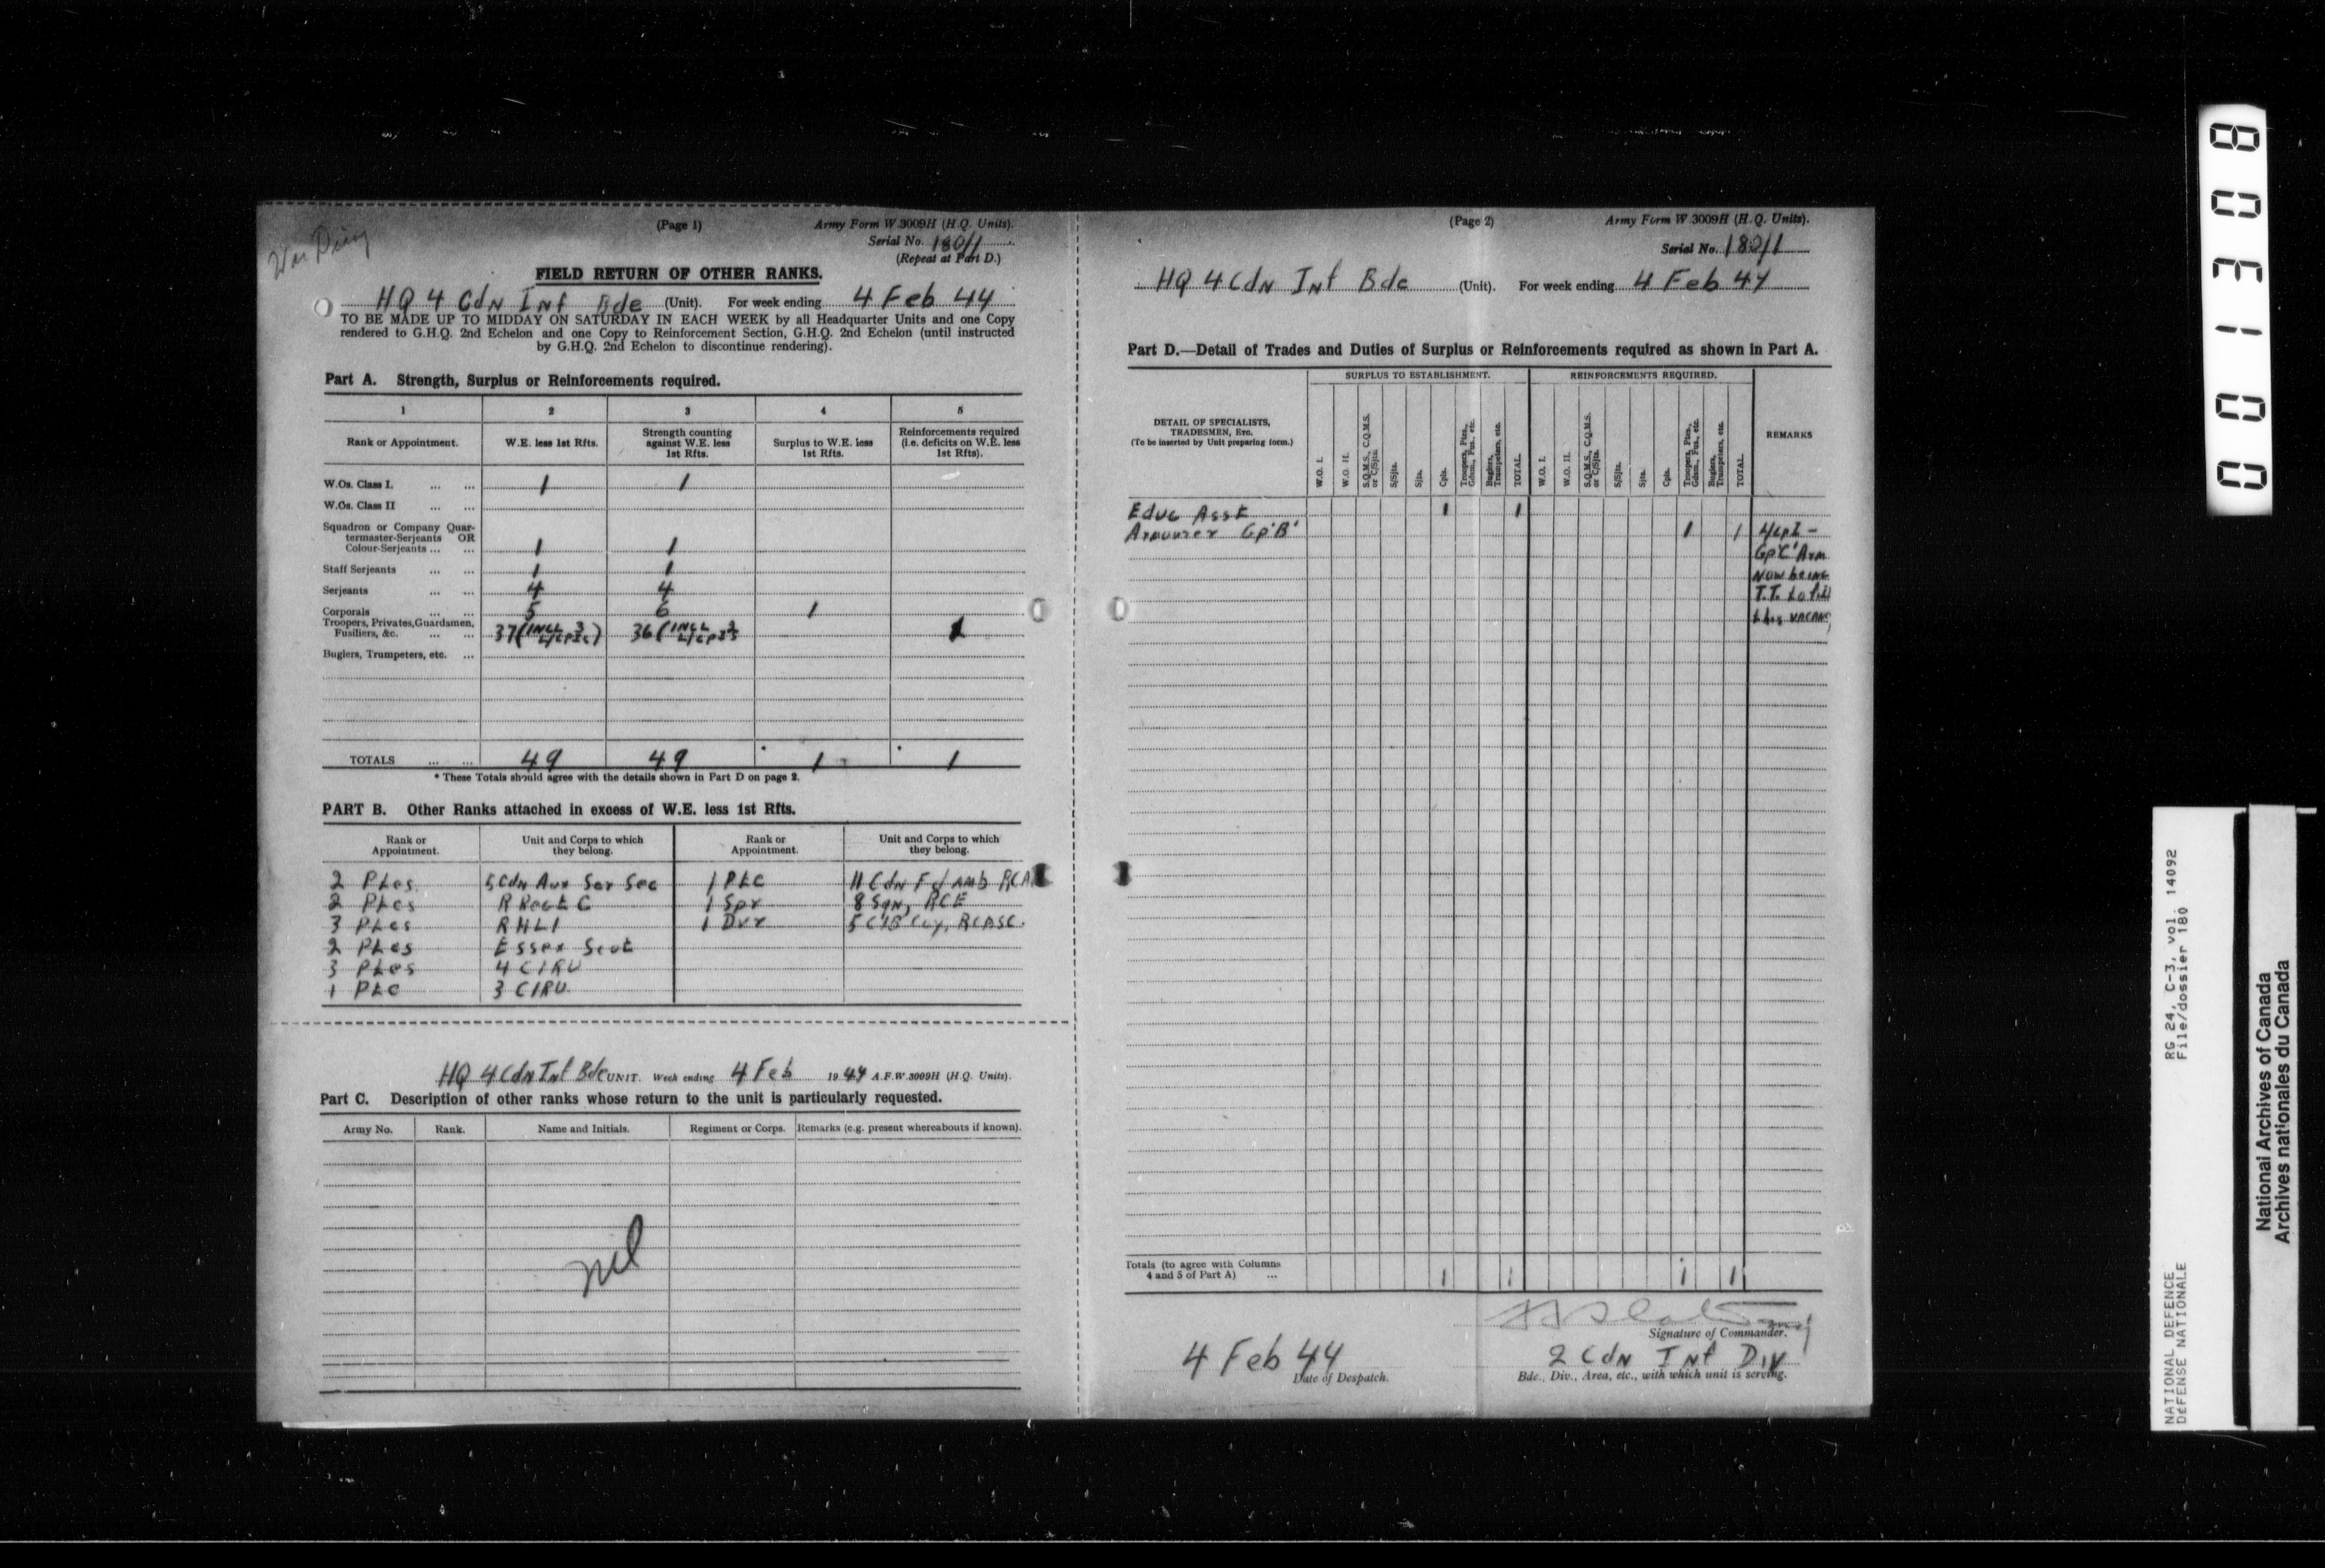 War Diary
(Page 1) Army Form W.3009H (H.Q. Units).
Serial No. 180/1
(Repeat at Part D.)
FIELD RETURN OF OTHER RANKS.
HQ 4 Cdn Inf Bde (Unit). For week ending 4 Feb 44
TO BE MADE UP TO MIDDAY ON SATURDAY IN EACH WEEK by all Headquarter Units and one Copy
rendered to G.H.Q. 2nd Echelon and one Copy to Reinforcement Section, G.H.Q. 2nd Echelon (until instructed
by G.H.Q. 2nd Echelon to discontinue rendering).
Part A. Strength, Surplus or Reinforcements required.
1 2 3 4 5
Rank or Appointment. W.E. less 1st Rfts. Strength counting against W.E. less 1st Rfts. Surplus to W.E. less 1st Rfts. Reinforcements required (i.e. deficits on W.E. less 1st Rfts).
W.Os. Class I. ... ... 1 1
W.Os. Class II ... ...
Squadron or Company Quar-
termaster-Serjeants OR
Colour-Serjeants ... ... 1 1
Staff Serjeants ... ... 1 1
Serjeants ... ... 4 4
Corporals ... ... 5 6 1
Troopers, Privates, Guardsmen,
Fusiliers, &c. ... ... 37 (INCL 3 L/Cpls) 36 (INCL 3 L/Cpls 1
Buglers, Trumpeters, etc. ...
TOTALS ... ... 49 49 * 1 * 1
* These Totals should agree with the details shown in Part D on page 2.
PART B. Other Ranks attached in excess of W.E. less 1st Rfts.
Rank or Appointment. Unit and Corps to which they belong. Rank or Appointment. Unit and Corps to which they belong.
2 Ptes 5 Cdn Aux Ser Sec 1 Pte 11 Cdn Fd Amb RCA
2 Ptes R Regt C 1 Spr 8 Sqn, RCE
3 Ptes RHLI 1 Dvr 5 CIB Coy, RCASC
2 Ptes Essex Scot
3 Ptes 4 CIRU
1 Pte 3 CIRU
HQ 4 Cdn Inf Bde UNIT. Week ending 4 Feb 1944 A.F.W.3009H (H.Q. Units).
Part C. Description of other ranks whose return to the unit is particularly requested.
Army No. Rank. Name and Initials. Regiment or Corps. Remarks (e.g. present whereabouts if known).
nil
(Page 2) Army Form W.3009H (H.Q. Units).
Serial No. 180/1
HQ 4 Cdn Inf Bde (Unit). For week ending 4 Feb 44
Part D.—Detail of Trades and Duties of Surplus or Reinforcements required as shown in Part A.
SURPLUS TO ESTABLISHMENT. REINFORCEMENTS REQUIRED.
DETAIL OF SPECIALISTS,
TRADESMEN, ETC.
(To be inserted by Unit preparing form.)
W.O. I. W.O. II. S.Q.M.S., C.Q.M.S. or C/Sjts. S/Sjts. Sjts. Cpls. Troopers, Ptes., Gdsm., Fus., etc. Buglers, Trumpeters, etc. TOTAL. W.O. I. W.O. II. S.Q.M.S., C.Q.M.S. or C/Sjts. S/Sjts. Sjts. Cpls. Troopers, Ptes., Gdsm., Fus., etc. Buglers, Trumpeters, etc. TOTAL. REMARKS
Educ Asst 1 1
Armourer Gp'B' 1 1 L/Cpl -
Gp'C' Arm
Now being
T.T. to fill
this vacancy
Totals (to agree with Columns
4 and 5 of Part A) ... 1 1 1 1
Signature of Commander.
4 Feb 44 2 Cdn Inf Div
Date of Despatch. Bde., Div., Area, etc., with which unit is serving.
001308
NATIONAL DEFENCE RG 24, C-3, vol. 14092
DÉFENSE NATIONALE File/dossier 180
National Archives of Canada
Archives nationales du Canada